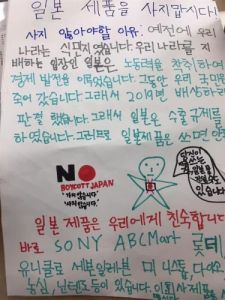 일본 제품을 사지맙시다!
사지 않아야할 이유. 예전에 우리
나라는 식민지였습니다. 우리나라를 지
배하는 입장인 일본은 노동력을 착취하여
경제 발전을 이뤄었습니다. 그동안 우리 국민은
죽어 갔습니다. 그래서 2019년 배상하라
판결 했습니다. 그래서 일본은 수출규제를
하였습니다. 그러므로 일본제품은 쓰면 안
NO
BOYCOTT JAPAN
"가지 않습니다"
"사지 않습니다"
있습니다
일본 제품은 우리에게 친숙합니다
바로 SONY ABCMart 롯데
유니클로 세븐일레븐 미니스톱, 다이소
농심, 닌텐도 등이 있습니다. 이 제품을